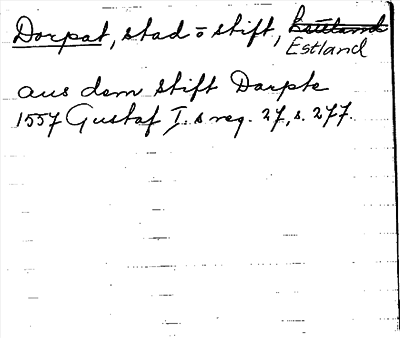 Dorpat, stad o stift, Lettland
Estland
aus dem stift Darpte
1557 Gustaf I.s reg. 27, s. 277.